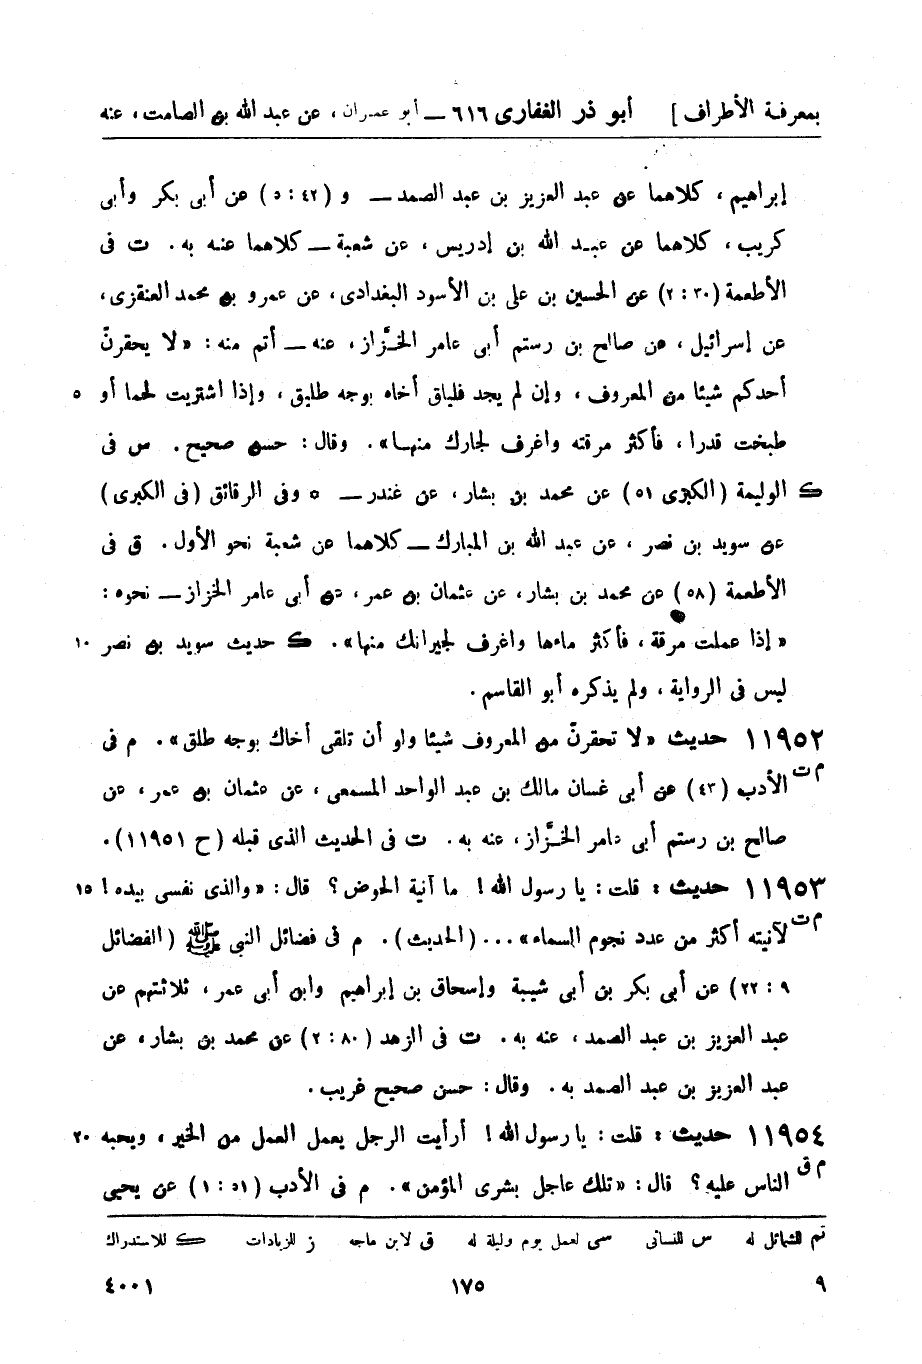 بمعرفة الأطراف ] أبو ذر الغفارى ٦١٦ — أبو عمران ، عن عبد الله بن الصامت ، عنه
إبراهيم ، كلاهما عن عبد العزيز بن عبد الصمد — و (٤٢ : ٥) عن أبى بكر وأبى
كريب ، كلاهما عن عبد الله بن إدريس ، عن شعبة — كلاهما عنه به . ت فى
الأطعمة (٣٠ : ٢) عن الحسين بن على بن الأسود البغدادى ، عن عمرو بن محمد العنقزى ،
عن إسرائيل ، عن صالح بن رستم أبى عامر الخزَّاز ، عنه — أتم منه : « لا يحقرنّ
أحدكم شيئا من المعروف ، وإن لم يجد فليلق أخاه بوجه طليق ، وإذا اشتريت لحما أو ٥
طبخت قدرا ، فأكثر مرقته واغرف لجارك منها » . وقال : حسن صحيح . س فى
ك الوليمة (الكبرى ٥١) عن محمد بن بشار ، عن غندر — ٥ وفى الرقائق (فى الكبرى)
عن سويد بن نصر ، عن عبد الله بن المبارك — كلاهما عن شعبة نحو الأول . ق فى
الأطعمة (٥٨) عن محمد بن بشار ، عن عثمان بن عمر ، عن أبى عامر الخزاز — نحوه :
« إذا عملت مرقة ، فأكثر ماءها واغرف لجيرانك منها » . ك حديث سويد بن نصر ١٠
ليس فى الرواية ، ولم يذكره أبو القاسم .
١١٩٥٢ حديث « لا تحقرنّ من المعروف شيئا ولو أن تلقى أخاك بوجه طلق » . م فى
م ت الأدب (٤٣) عن أبى غسان مالك بن عبد الواحد المسمعى ، عن عثمان بن عمر ، عن
صالح بن رستم أبى عامر الخزَّاز ، عنه به . ت فى الحديث الذى قبله (ح ١١٩٥١) .
١١٩٥٣ حديث : قلت : يا رسول الله ! ما آنية الحوض ؟ قال : « والذى نفسى بيده ! ١٥
م ت لآنيته أكثر من عدد نجوم السماء » ... (الحديث) . م فى فضائل النبى ﷺ (الفضائل
٩ : ٢٢) عن أبى بكر بن أبى شيبة وإسحاق بن إبراهيم وابن أبى عمر ، ثلاثتهم عن
عبد العزيز بن عبد الصمد ، عنه به . ت فى الزهد (٨٠ : ٢) عن محمد بن بشار ، عن
عبد العزيز بن عبد الصمد به . وقال : حسن صحيح غريب .
١١٩٥٤ حديث : قلت : يا رسول الله ! أرأيت الرجل يعمل العمل من الخير ، ويحبه ٢٠
م ق الناس عليه ؟ قال : « تلك عاجل بشرى المؤمن » . م فى الأدب (٥١ : ١) عن يحيى
تم الشمائل له س للنسائى سى لعمل يوم وليلة له ق لابن ماجه ز للزيادات ك للاستدراك
٩ ١٧٥ ٤٠٠١